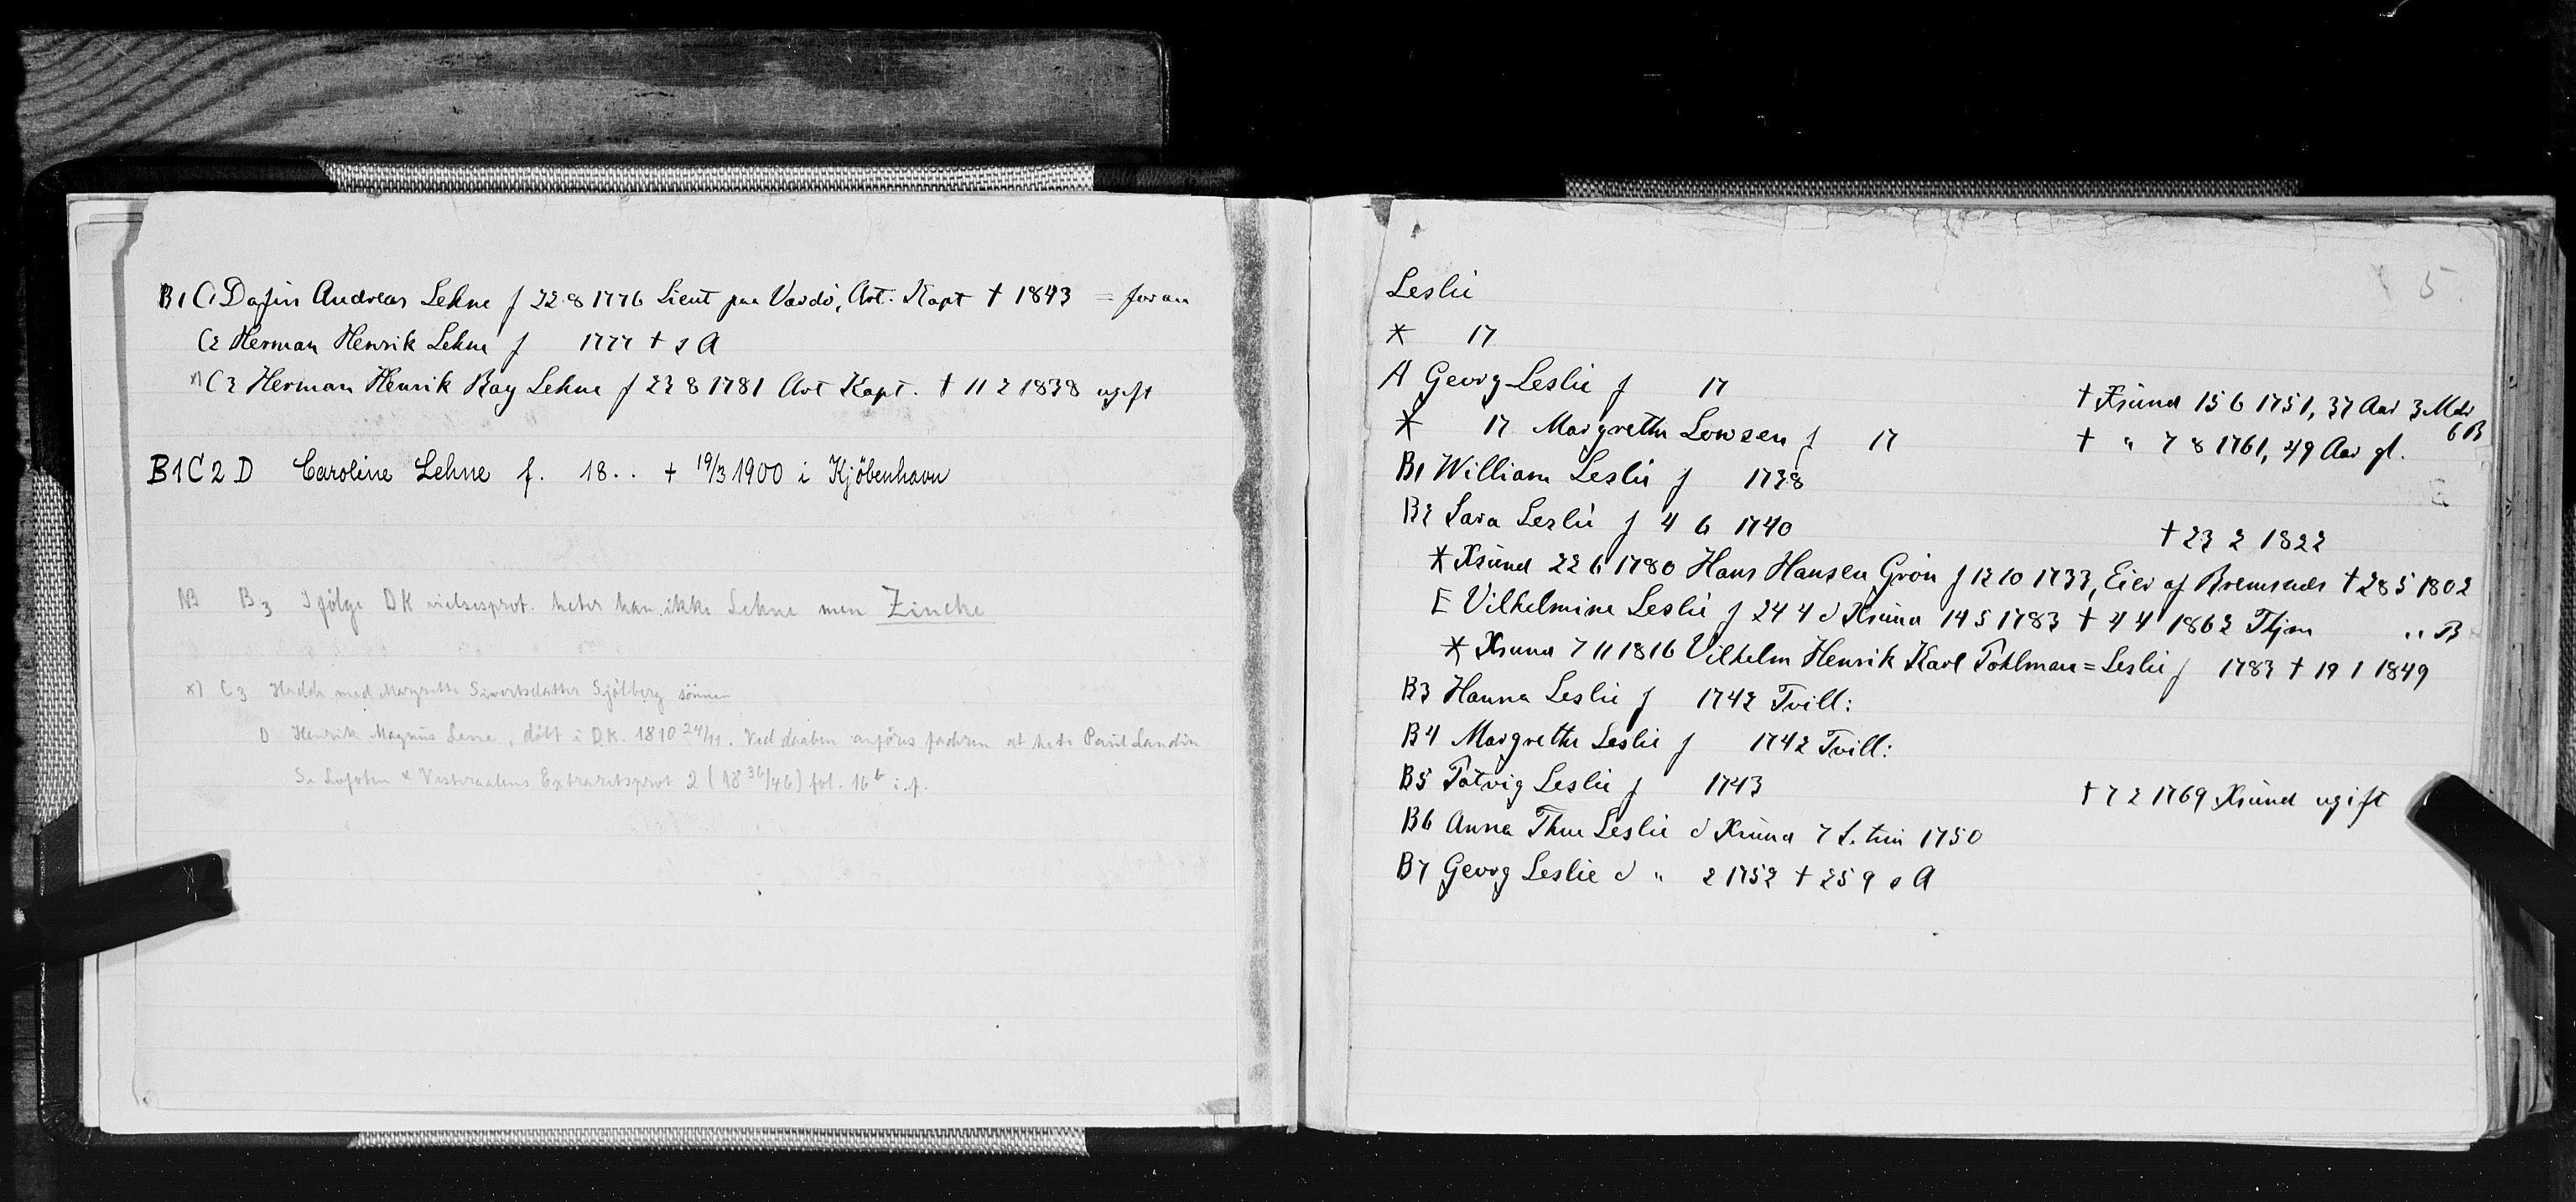 B1 C1 Dafin Andreas Lehne f 22 8 1776 Lieut paa Vardö, Art. Kapt † 1843 = foran
C2 Herman Henrik Lehne f 1777 † s A
x) C3 Herman Henrik Ray Lehne f 23 8 1781 Art Kapt. † 11 2 1838 ugift
B1C2D Caroline Lehne f. 18.. + 19/3 1900 i Kjöbenhavn
NB B3 Ifölge DK vielsesprot. heter han ikke Lehne men Zincke
x) C3 Hadde med Margrethe Sivertsdatter Sjölberg sönnen
D Henrik Magnus Lene, döbt i DK. 1810 24/11. Ved daaben anföres fadren at hete Paul Landin
Se Lofoten & Vesteraalens Extraretsprot 2 (18 36/46) fol. 16 b i.f.
5
Leslie
* 17
A Georg Leslie f 17 † Xsund 15 6 1751, 37 Aar 3 Mdr
* 17 Margrethe Lowsen f 17 † " 7 8 1761, 49 Aar gl. 6 B
B1 William Leslie f 1738
B2 Sara Leslie f 4 6 1740 † 23 2 1822
* Xsund 22 6 1780 Hans Hansen Grön f 12 10 1733, Eier af Bremsnes † 28 5 1802
E Vilhelmine Leslie f 24 4 d Xsund 14 5 1783 † 4 4 1862 Thjm .. B
* Xsund 7 11 1816 Vilhelm Henrik Karl Pohlman = Leslie f 1783 † 19 1 1849
B3 Hanna Leslie f 1742 Tvill:
B4 Margrethe Leslie f 1742 Tvill:
B5 Leslie f 1743 † 7 2 1769 Xsund ugift
B6 Anna Thue Leslie d Xsund 7 S. trin 1750
B7 Georg Leslie d " 2 1752 † 25 9 s A